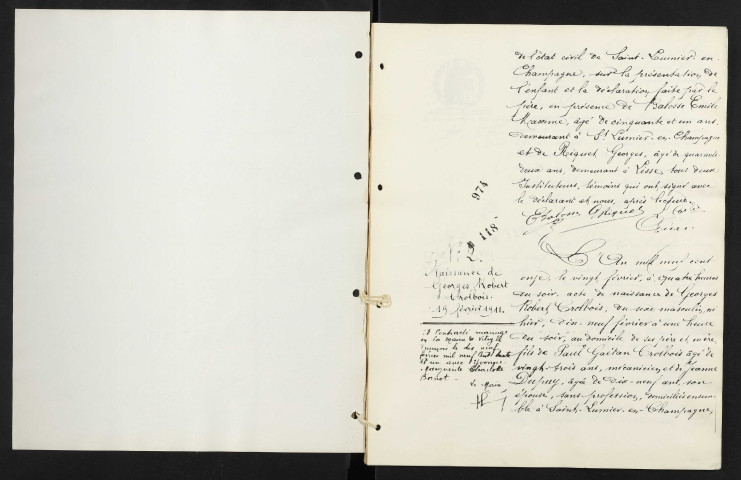 de l'état civil de Saint-Lumier-en-
Champagne, sur la présentation de
l'enfant et la déclaration faite par le
père, en présence de Balosse Emile
Maxime, âgé de cinquante et un ans,
demeurant à St Lumier-en-Champagne
et de Riquet Georges, âgé de quarante
deux ans, demeurant à Lisse, tous deux
Instituteurs, témoins qui ont signé avec
le déclarant et nous, après lecture.
EBalosse GRiquet
974
118
N° 2.
Naissance de
Georges, Robert
Crolbois
19 février 1911.
A contracté mariage
en la mairie de Vitry le
le dix neuf
mil neuf cent trente
et un avec Yvonne
Marguerite Charlotte
Le Maire
L'An mil neuf cent
onze, le vingt février, à quatre heures
du soir, acte de naissance de Georges
Robert Crolbois, du sexe masculin, né
hier, dix-neuf février à une heure
du soir, au domicile de ses père et mère,
fils de Paul Gaëtan Crolbois âgé de
vingt-trois ans, mécanicien et de Jeanne
Dupuy, âgée de dix-neuf ans, son
épouse, sans profession, domiciliés ensem-
ble à Saint-Lumier-en-Champagne,